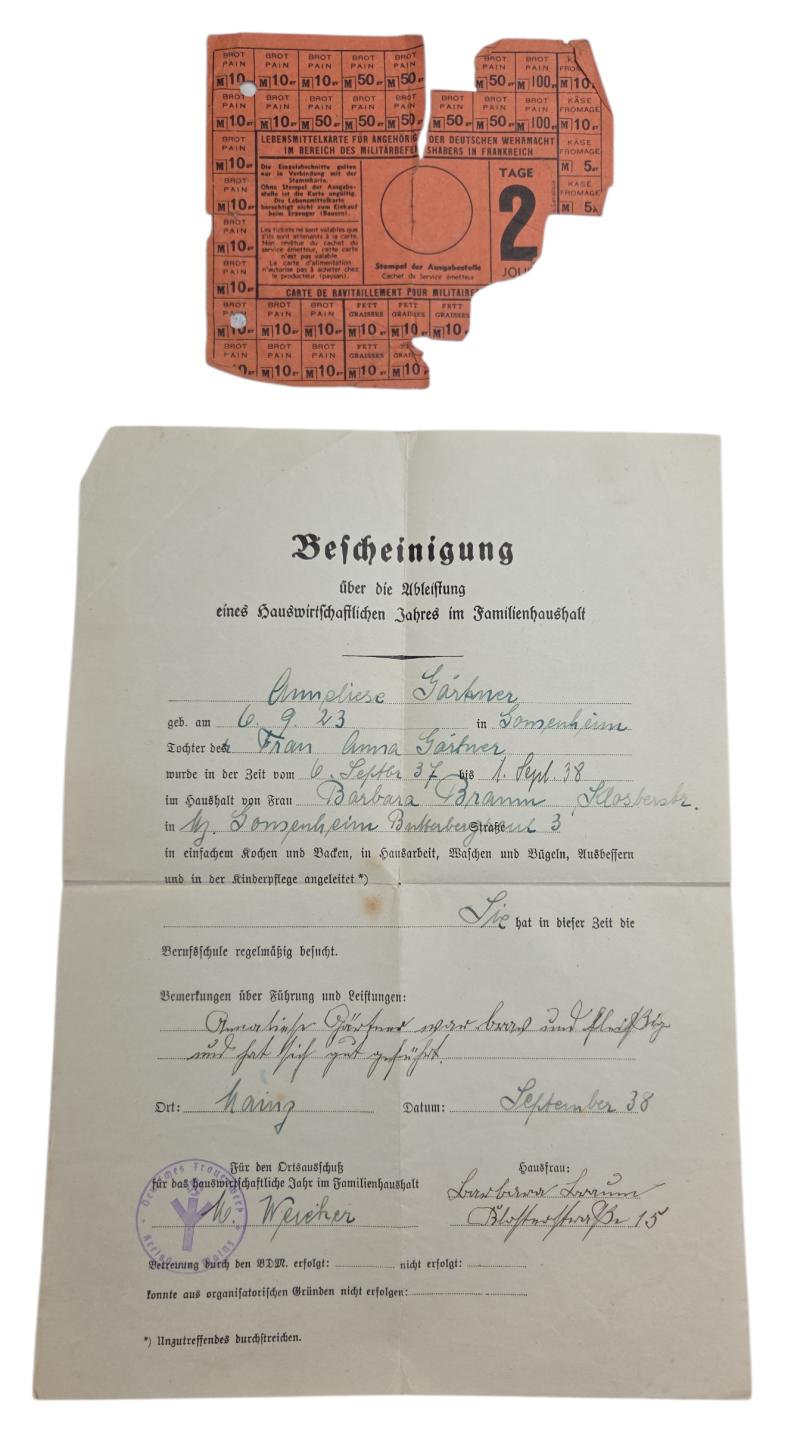 BROT BROT BROT BROT BROT BROT BROT KÄSE
PAIN PAIN PAIN PAIN PAIN PAIN PAIN FROM
M 10 M 10 gr M 10 gr M 50 gr M 50 gr M 50 gr M 100 gr M 10
BROT BROT BROT BROT BROT BROT BROT BROT KÄSE
PAIN PAIN PAIN PAIN PAIN PAIN PAIN PAIN FROMAGE
M 10 gr M 10 gr M 50 gr M 50 gr M 50 M 50 gr M 50 gr M 100 gr M 10 gr
LEBENSMITTELKARTE FÜR ANGEHÖRIG DER DEUTSCHEN WEHRMACHT
IM BEREICH DES MILITÄRBEFEHLSHABERS IN FRANKREICH
BROT
PAIN
M 10 gr
BROT
PAIN
M 10 gr
BROT
PAIN
M 10 gr
BROT
PAIN
M 10 gr
Die Einzelabschnitte gelten
nur in Verbindung mit der
Stammkarte.
Ohne Stempel der Ausgabe-
stelle ist die Karte ungültig.
Die Lebensmittelkarte
berechtigt nicht zum Einkauf
beim Erzeuger (Bauern).
Les tickets ne sont valables que
s'ils sont attenants à la carte.
Non revêtue du cachet du
service émetteur, cette carte
n'est pas valable
La carte d'alimentation
n'autorise pas à acheter chez
le producteur (paysan).
Stempel der Ausgabestelle
Cachet du Service émetteur
TAGE
2
JOU
KÄSE
FROMAGE
M 5 gr
KÄSE
FROMAGE
M 5
CARTE DE RAVITAILLEMENT POUR MILITAIRE
BROT BROT BROT FETT FETT FETT
PAIN PAIN PAIN GRAISSES GRAISSES GRAISSES
M 10 gr M 10 gr M 10 gr M 10 gr M 10 gr M 10 gr
BROT BROT BROT FETT FE
PAIN PAIN PAIN GRAISSES GRAI
10 gr M 10 gr M 10 gr M 10 gr M 10 gr
Bescheinigung
über die Ableistung
eines Hauswirtschaftlichen Jahres im Familienhaushalt
Anneliese Gärtner
geb. am 6. 9. 23 in Gonsenheim
Tochter des Frau Anna Gärtner
wurde in der Zeit vom 6. Septbr 37 bis 1. Sept. 38
im Haushalt von Frau Barbara Braun Klosterstr.
in Mz. Gonsenheim Straße 3
in einfachem Kochen und Backen, in Hausarbeit, Waschen und Bügeln, Ausbessern
und in der Kinderpflege angeleitet *)
Sie hat in dieser Zeit die
Berufsschule regelmäßig besucht.
Bemerkungen über Führung und Leistungen:
Annaliese Gärtner war brav und fleißig
und hat sich gut geführt.
Ort: Mainz Datum: September 38
Für den Ortsausschuß Hausfrau:
für das hauswirtschaftliche Jahr im Familienhaushalt
M. Weicker Barbara Braun
Klosterstraße 15
Deutsches Frauenwerk
Mainz
Betreuung durch den BDM. erfolgt: nicht erfolgt:
konnte aus organisatorischen Gründen nicht erfolgen:
*) Unzutreffendes durchstreichen.